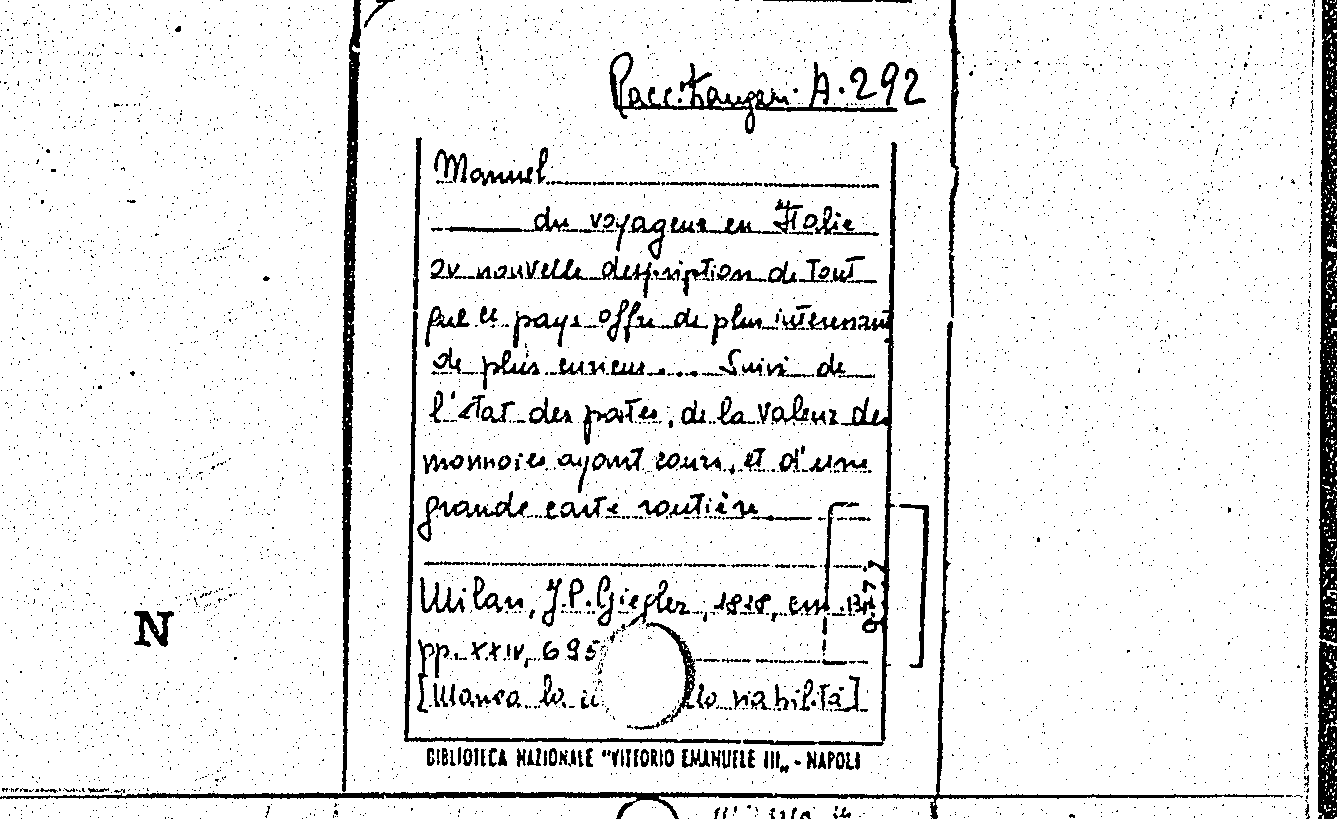 Racc. A. 292
Manuel
du voyageur en Italie
ou nouvelle description de tout
que ce pays offre de plus interessant
de plus curieux.... Suivi de
l'état des postes, de la valeur des
monnoies ayant cours, et d'une
grande carte routière
Milan, J.P. Giegler, 1818, cm.
977
pp. XXIV, 695
[Manca la viabilità]
BIBLIOTECA NAZIONALE "VITTORIO EMANUELE III„ - NAPOLI
N